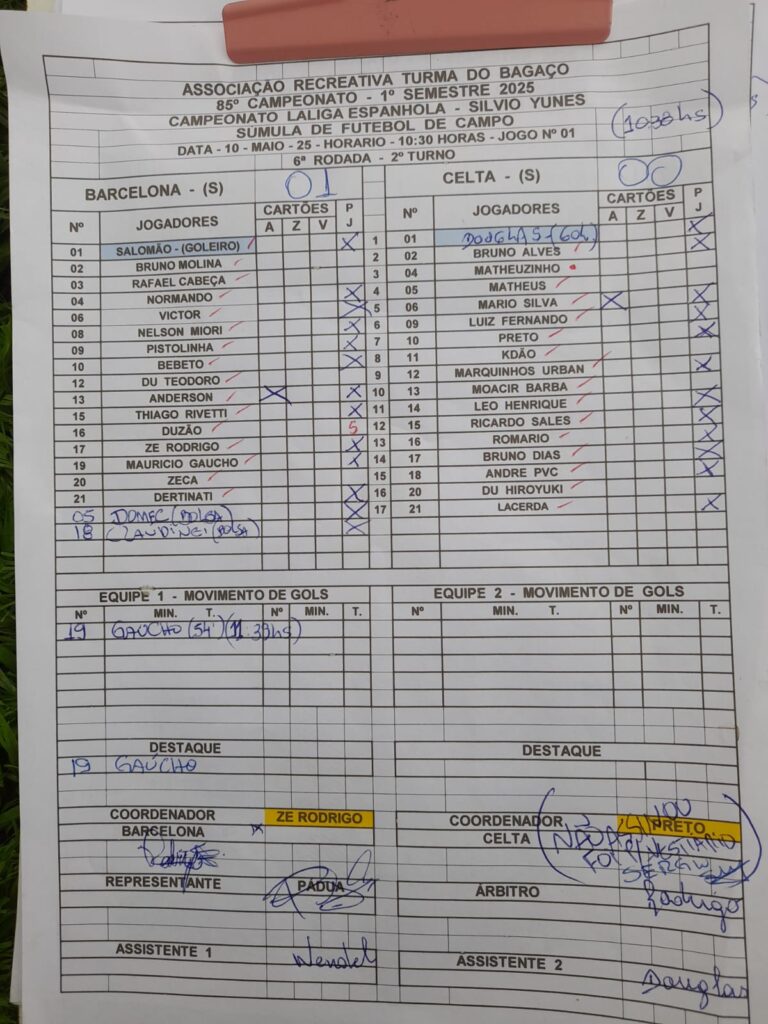 ASSOCIAÇÃO RECREATIVA TURMA DO BAGAÇO
85º CAMPEONATO - 1º SEMESTRE 2025
CAMPEONATO LALIGA ESPANHOLA - SILVIO YUNES
SÚMULA DE FUTEBOL DE CAMPO
(10:38hs)
DATA - 10 - MAIO - 25 - HORARIO - 10:30 HORAS - JOGO Nº 01
6ª RODADA - 2º TURNO
BARCELONA - (S) 01
Nº JOGADORES CARTÕES P J
A Z V
01 SALOMÃO - (GOLEIRO) X
02 BRUNO MOLINA
03 RAFAEL CABEÇA
04 NORMANDO X
06 VICTOR X
08 NELSON MIORI X
09 PISTOLINHA X
10 BEBETO X
12 DU TEODORO
13 ANDERSON X X
15 THIAGO RIVETTI X
16 DUZÃO 5
17 ZE RODRIGO X
19 MAURICIO GAUCHO X
20 ZECA
21 DERTINATI X
05 DOMEC (BOLSA) X
18 CLAUDINEI (BOLSA) X
1
2
3
4
5
6
7
8
9
10
11
12
13
14
15
16
17
CELTA - (S) 00
Nº JOGADORES CARTÕES P J
A Z V
01 DOUGLAS - (GOL) X
02 BRUNO ALVES X
04 MATHEUZINHO
05 MATHEUS
06 MARIO SILVA X X
09 LUIZ FERNANDO X
10 PRETO X
11 KDÃO
12 MARQUINHOS URBAN X
13 MOACIR BARBA
14 LEO HENRIQUE X
15 RICARDO SALES X
16 ROMARIO X
17 BRUNO DIAS X
18 ANDRE PVC X
20 DU HIROYUKI
21 LACERDA X
EQUIPE 1 - MOVIMENTO DE GOLS
Nº MIN. T. Nº MIN. T.
19 GAÚCHO (54') (11:39hs)
EQUIPE 2 - MOVIMENTO DE GOLS
Nº MIN. T. Nº MIN. T.
DESTAQUE
19 GAÚCHO
DESTAQUE
COORDENADOR
BARCELONA
ZE RODRIGO
COORDENADOR
CELTA
PRETO
REPRESENTANTE PÁDUA
ÁRBITRO Rodrigo
ASSISTENTE 1 Wendel
ASSISTENTE 2 Douglas